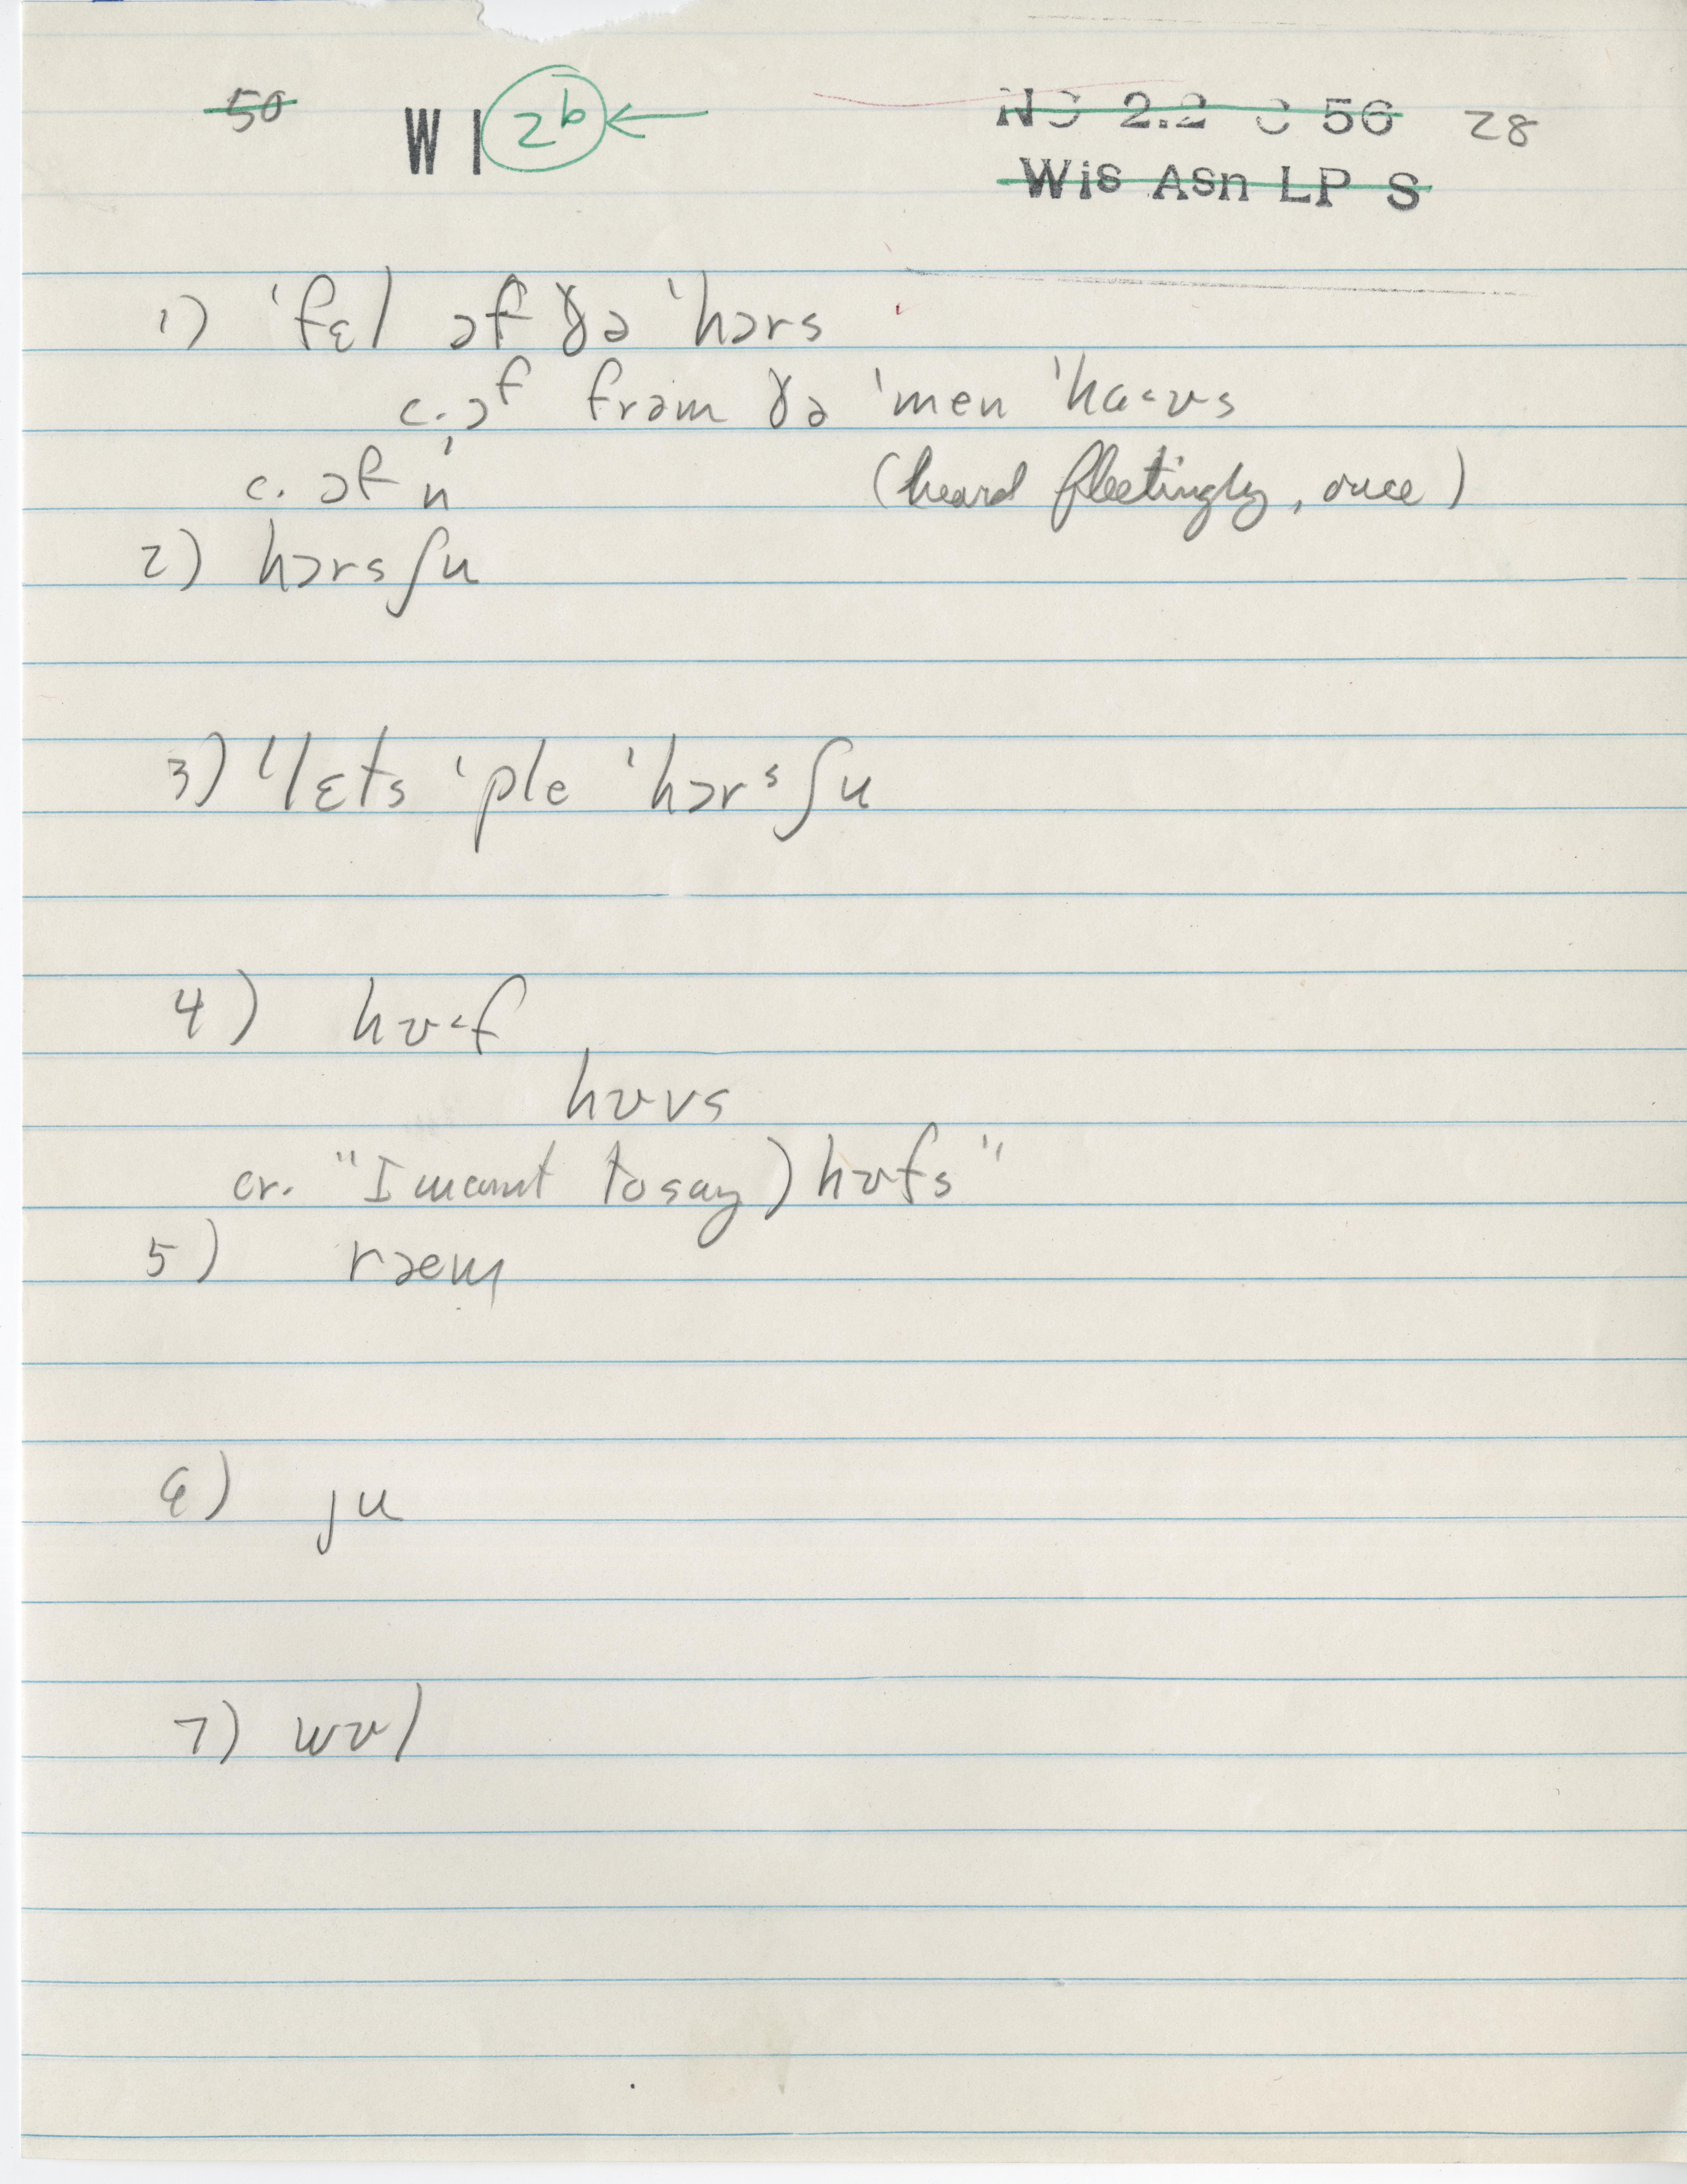 50 W I 2ᵇ ← NC 2.2 C 56 28
Wis Asn LP S
1) ˈfɛl ɔf ðə ˈhɔrs
c. ɔf frəm ðə ˈmen ˈhɑ˂ʊs
c. ɔf n̩ (heard fleetingly, once)
2) hɔrsʃu
3) ˈlɛts ˈple ˈhɔrˢʃu
4) hʊ˂f
hʊvs
cr. "I want to say) hʊfs"
5) rəem
6) ju
7) wʊl